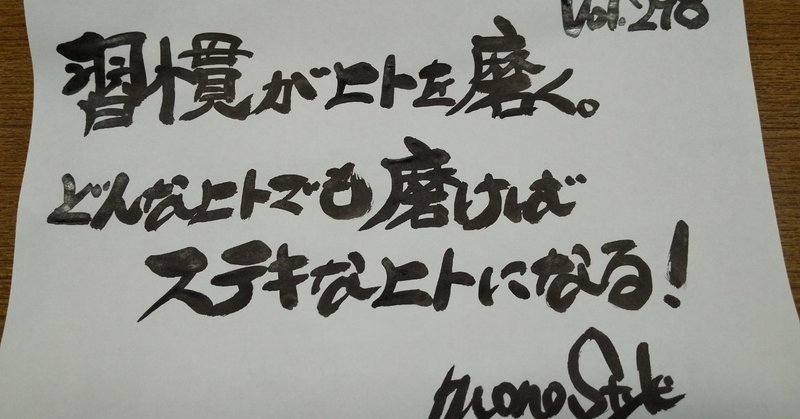 Vol.298
習慣がヒトを磨く。
どんなヒトでも磨けば
ステキなヒトになる!
monoStyle